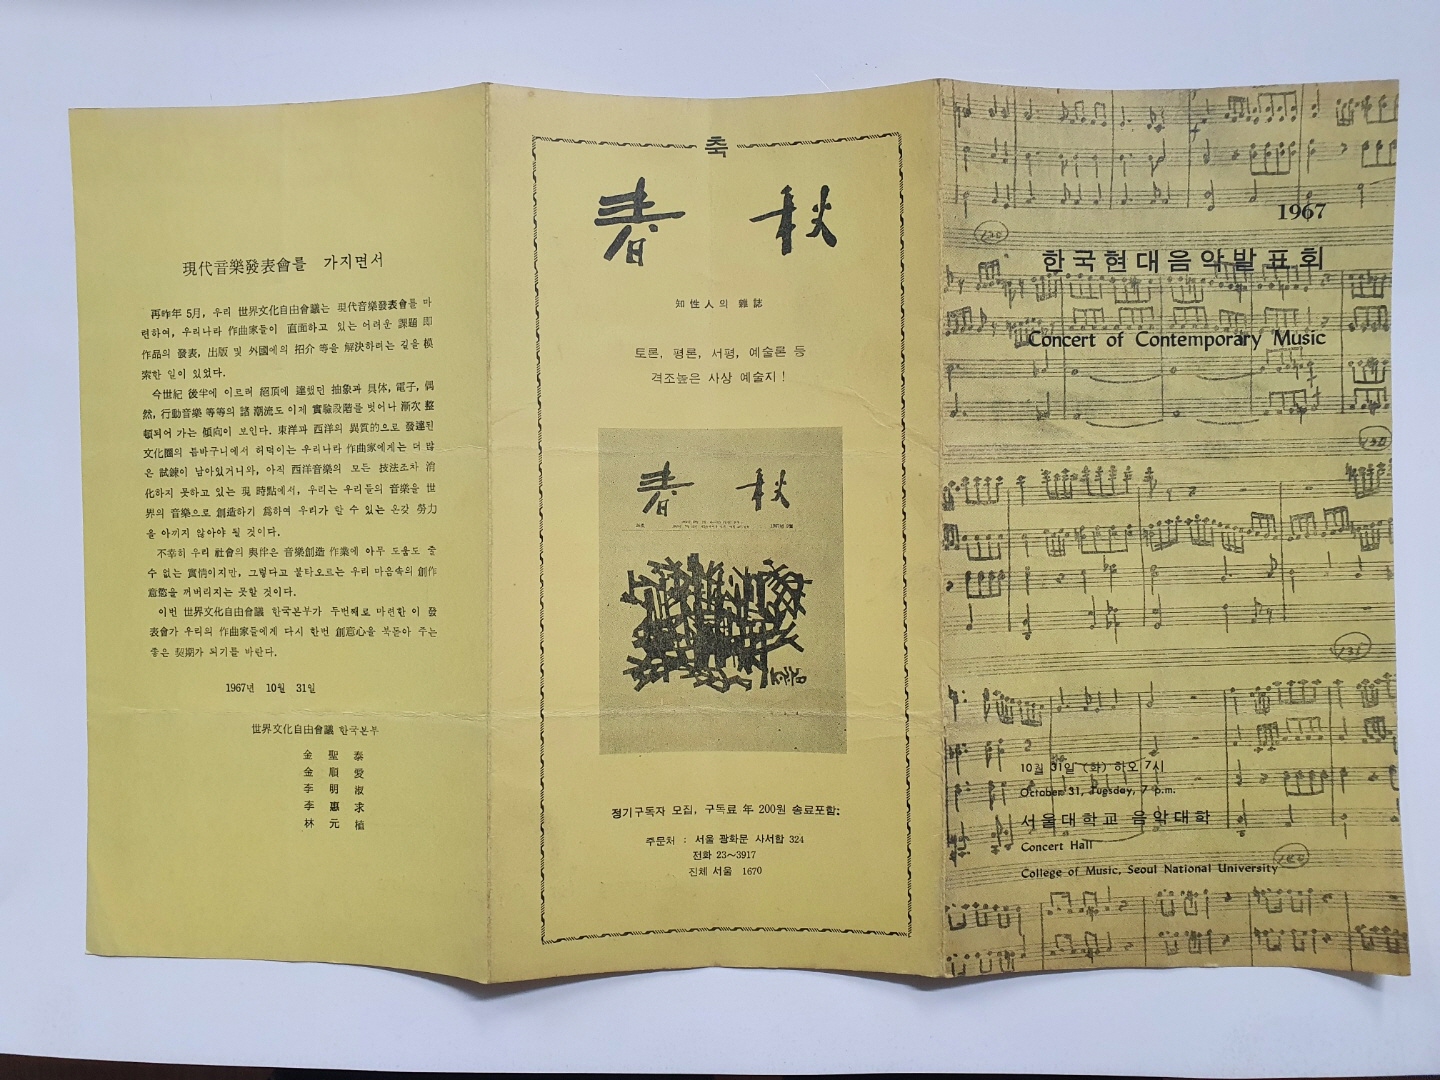 現代音樂發表會를 가지면서
再昨年 5月, 우리 世界文化自由會議는 現代音樂發表會를 마
련하여, 우리나라 作曲家들이 直面하고 있는 어려운 課題 即
作品의 發表, 出版 및 外國에의 招介 等을 解決하려는 길을 模
索한 일이 있었다.
今世紀 後半에 이르러 絕頂에 達했던 抽象과 具体, 電子, 偶
然, 行動音樂 等等의 諸 潮流도 이제 實驗段階를 벗어나 漸次 整
頓되어 가는 傾向이 보인다. 東洋과 西洋의 異質的으로 發達된
文化圈의 틈바구니에서 허덕이는 우리나라 作曲家에게는 더 많
은 試鍊이 남아있거니와, 아직 西洋音樂의 모든 技法조차 消
化하지 못하고 있는 現 時點에서, 우리는 우리들의 音樂을 世
界의 音樂으로 創造하기 爲하여 우리가 할 수 있는 온갖 勞力
을 아끼지 않아야 될 것이다.
不幸히 우리 社會의 與件은 音樂創造 作業에 아무 도움도 줄
수 없는 實情이지만, 그렇다고 불타오르는 우리 마음속의 創作
意慾을 꺼버리지는 못할 것이다.
이번 世界文化自由會議 한국본부가 두번째로 마련한 이 發
表會가 우리의 作曲家들에게 다시 한번 創意心을 북돋아 주는
좋은 契期가 되기를 바란다.
1967년 10월 31일
世界文化自由會議 한국본부
金聖泰
金順愛
李明淑
李惠求
林元植
축
春秋
知性人의 雜誌
토론, 평론, 서평, 예술론 등
격조높은 사상 예술지!
春秋
정기구독자 모집, 구독료 年 200원 송료포함:
주문처 : 서울 광화문 사서함 324
전화 23~3917
진체 서울 1670
1967
한국현대음악발표회
Concert of Contemporary Music
120
130
135
140
10월 31일 (화) 하오 7시
October 31, Tuesday, 7 p.m.
서울대학교 음악대학
Concert Hall
College of Music, Seoul National University